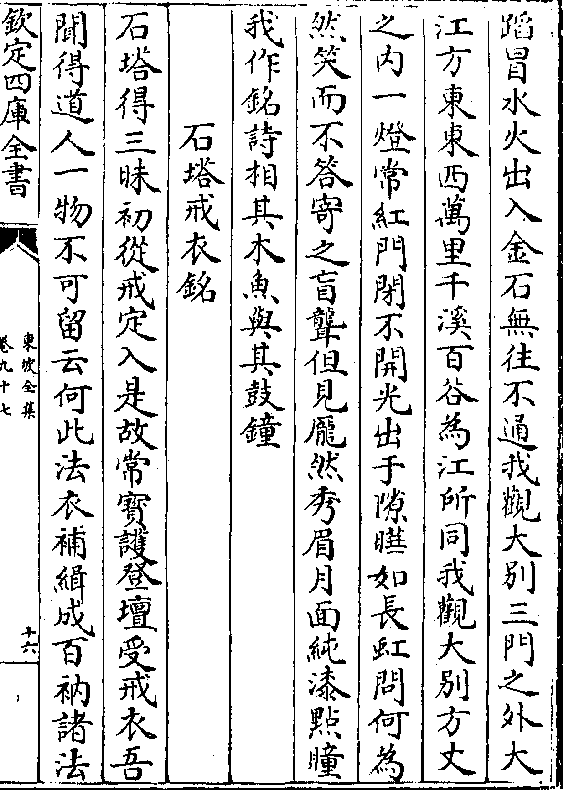 蹈冒水火出入金石無往不通我觀大别三門之外大
江方東東西萬里千溪百谷為江所同我觀大别方丈
之内一燈常紅門閉不開光出于隙曈如長虹問何為
然笑而不答寄之盲聾但見龎然秀眉月面純漆點瞳
我作銘詩相其木魚與其鼓鐘
石塔戒衣銘
石塔得三昧初從戒定入是故常寳護登壇受戒衣吾
聞得道人一物不可留云何此法衣補緝成百衲諸法
欽定四庫全書
東坡全集
卷九十七
十六